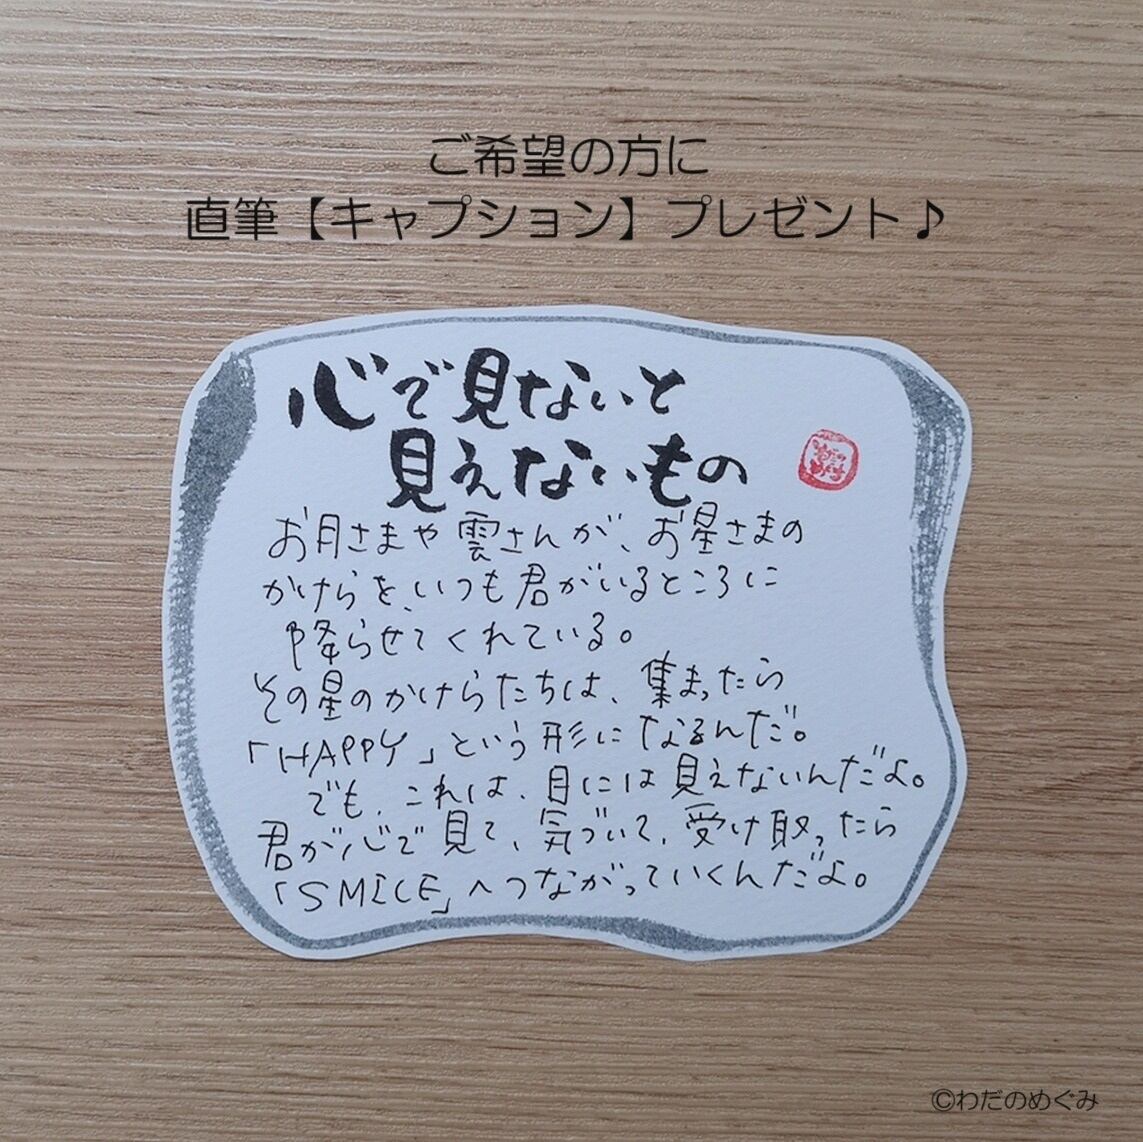 ご希望の方に
直筆【キャプション】プレゼント♪
心で見ないと
見えないもの
わだの
めぐみ
お月さまや雲さんが、お星さまの
かけらを、いつも君がいるところに
降らせてくれている。
その星のかけらたちは、集まったら
「HAPPY」という形になるんだ。
でも、これは、目には見えないんだよ。
君が心で見て、気づいて、受け取ったら
「SMILE」へつながっていくんだよ。
©わだのめぐみ